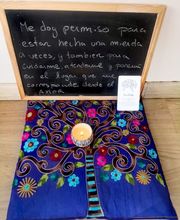 Me doy permiso para
estar hecha una mierda
a veces, y también para
cuidarme, atenderme y ponerme
en el lugar que me
corresponde desde el
Amor